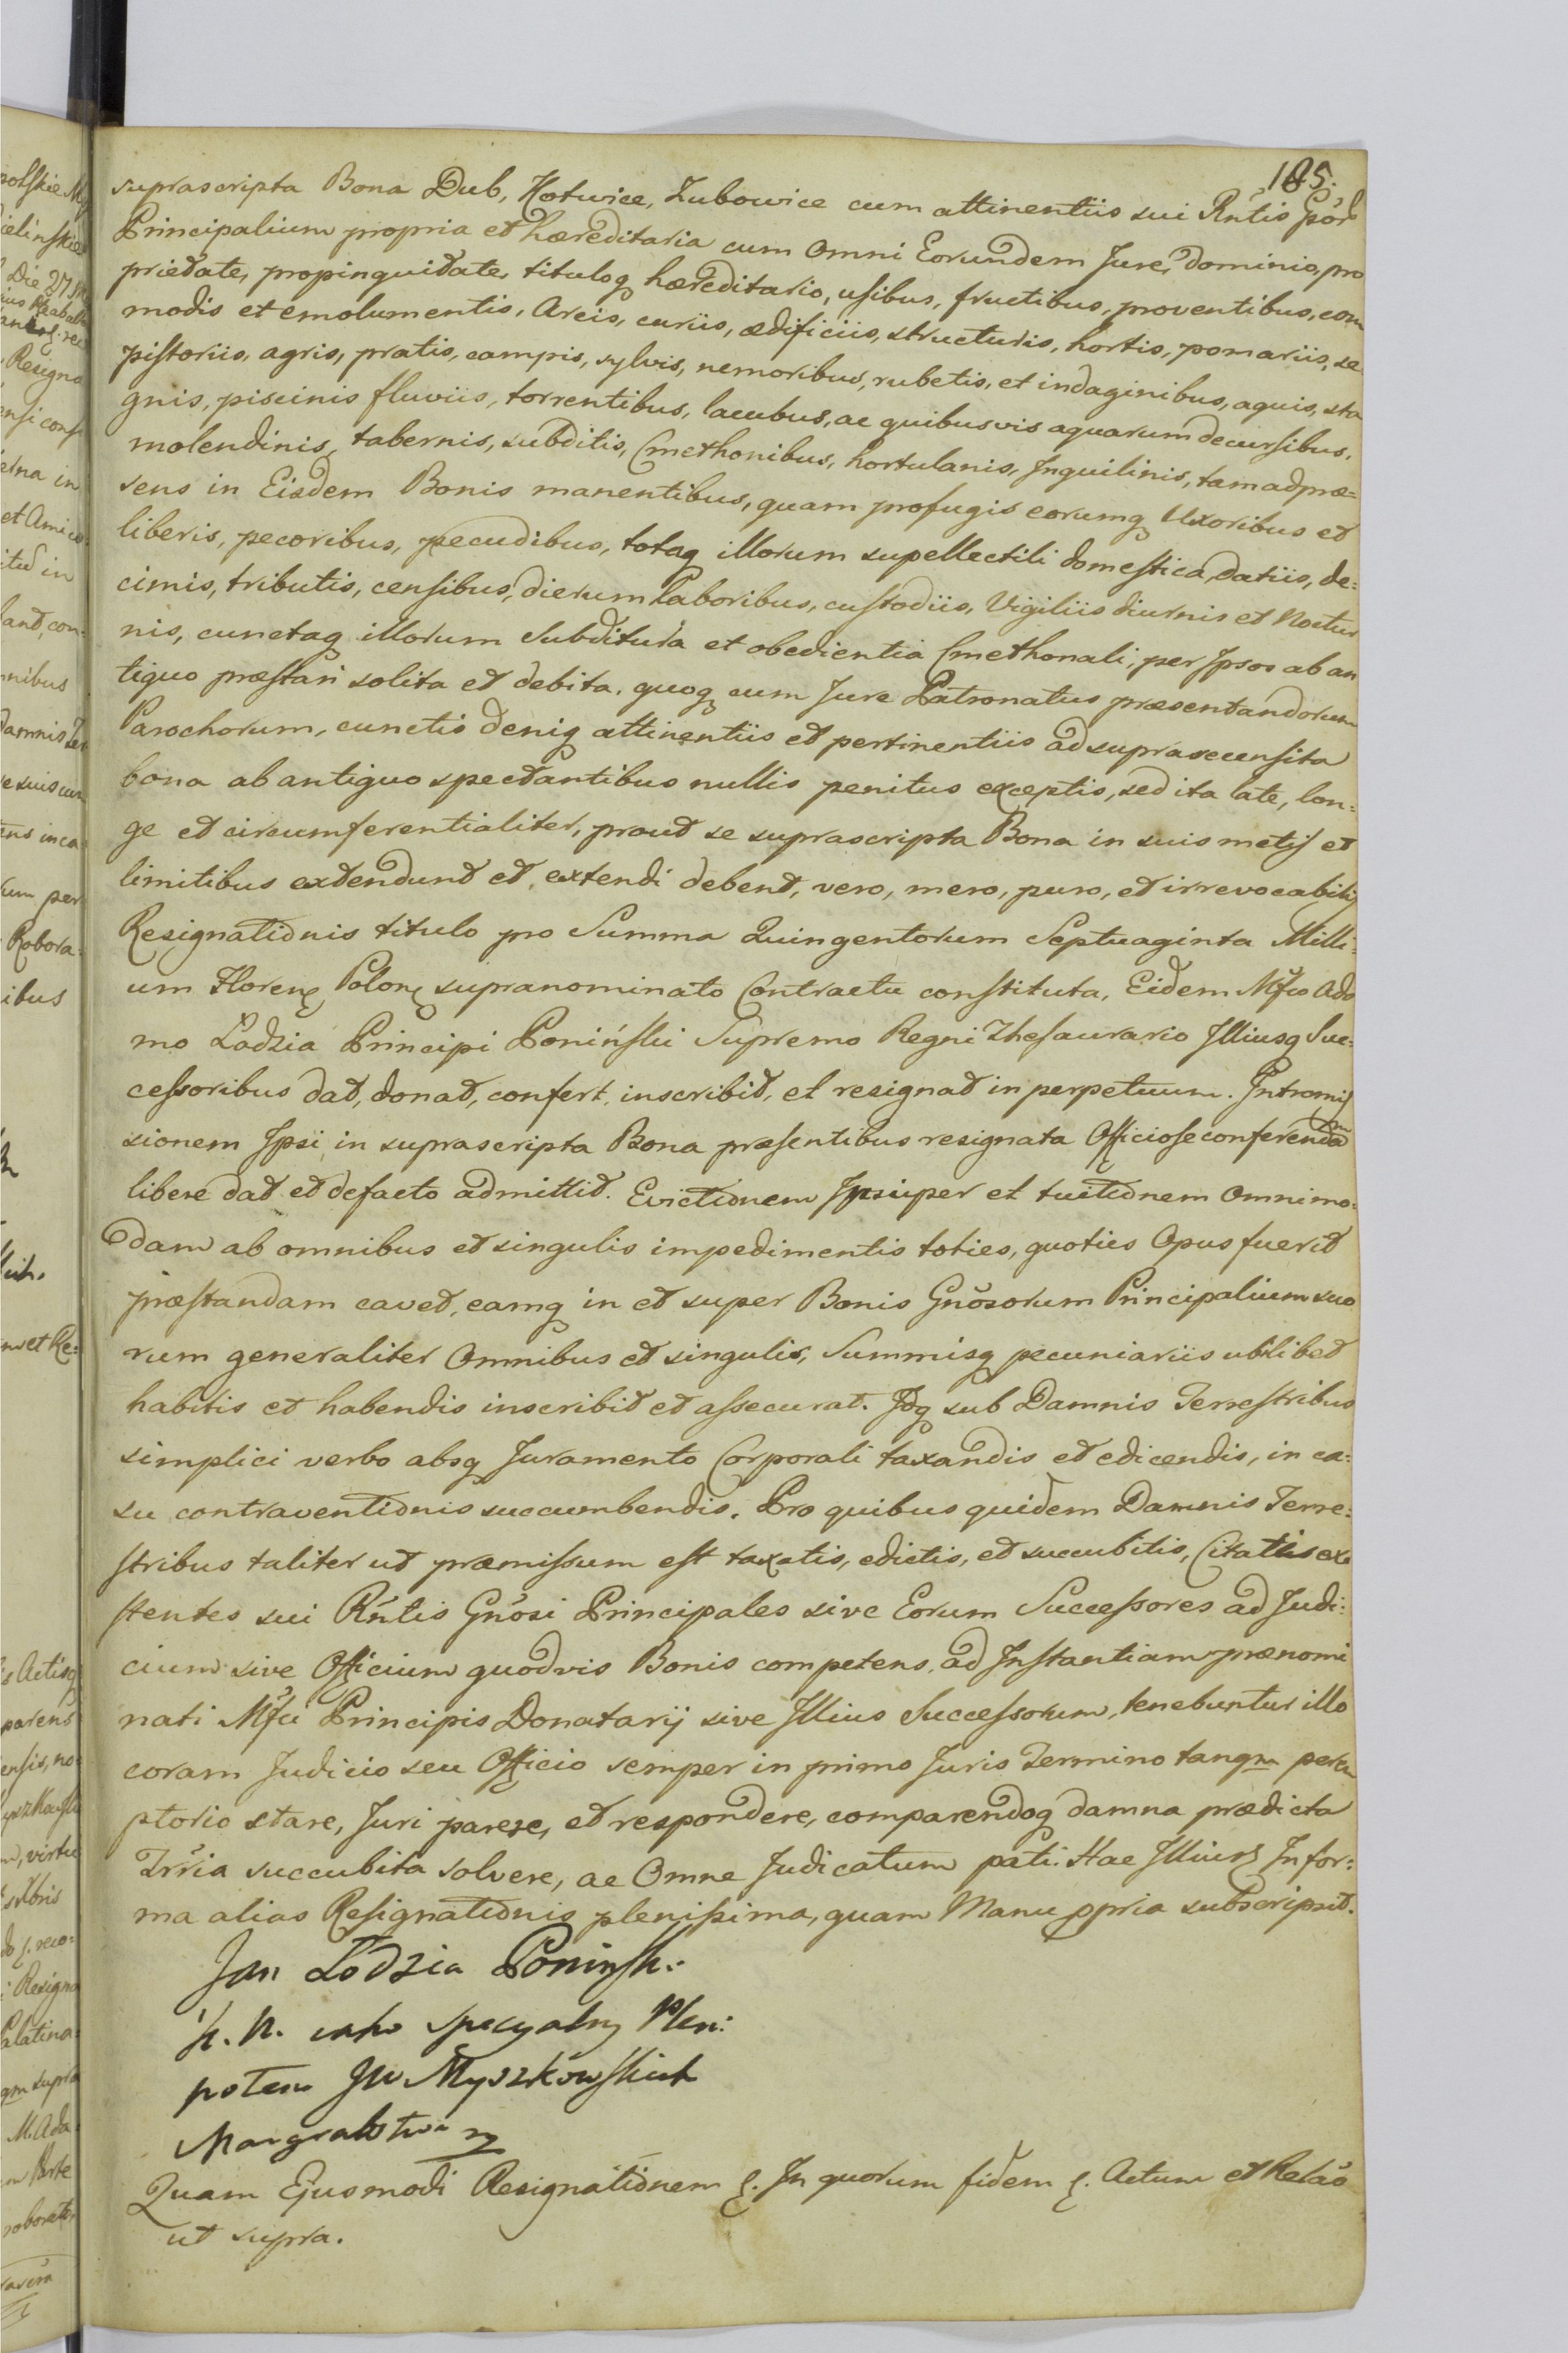 185.
suprascripta Bona Dub, Kotwice, Lubowice cum attinentiis sui Rńtis Gńor
Principalium propria et hæreditaria cum Omni Eorundem Jure, dominio, pro
prietate, propinquitate, tituloq hæreditario, usibus, fructibus, proventibus, com
modis et emolumentis, Areis, curiis, ædificiis, structuris, hortis, pomariis, se
pistoriis, agris, pratis, campis, sylvis, nemoribus, rubetis, et indaginibus, aquis, sta
gnis, piscinis fluviis, torrentibus, lacubus, ac quibusvis aquarum decursibus,
molendinis, tabernis, subditis, Cmethonibus, hortulanis, Inquilinis, tam ad præ=
sens in Eisdem Bonis manentibus, quam profugis eorumq Uxoribus et
liberis, pecoribus, pecudibus, totaq illorum supellectili domestica, datiis, de=
cimis, tributis, censibus, dierum laboribus, custodiis, Vigiliis diurnis et Noctur
nis, cunctaq illorum Subditura et obedientia Cmethonali, per Ipsos ab an
tiquo præstari solita et debita, quoq cum Jure Patronatus præsentandorum
Parochorum, cunctis deniq attinentiis et pertinentiis ad suprarecensita
bona ab antiquo spectantibus nullis penitus exceptis, sed ita late, lon=
ge et circumferentialiter, prout se suprascripta Bona in suis metis et
limitibus extendunt et extendi debent, vero, mero, puro, et irrevocabili
Resignationis titulo pro Summa Quingentorum Septuaginta Milli=
um Floren Polon supranominato Contractu constituta, Eidem Mfco Ada
mo Lodzia Principi Poniński Supremo Regni Thesaurario Illiusq Suc=
cessoribus dat, donat, confert, inscribit, et resignat in perpetuum. Intromis
sionem Ipsi in suprascripta Bona præsentibus resignata Officiose conferendam
libere dat et defacto admittit. Evictionem Ipsiq per et tuitionem Omnimo=
dam ab omnibus et singulis impedimentis toties, quoties Opus fuerit
præstandam cavet, eamq in et super Bonis Gnősorum Principalium suo
rum generaliter Omnibus et singulis, Summisq pecuniariis ubilibet
habitis et habendis inscribit et assecurat. Idq sub Damnis Terrestribus
simplici verbo absq Juramento Corporali taxandis et edicendis, in ca=
su contraventionis succumbendis. Pro quibus quidem Damnis Terre=
stribus taliter ut præmissum est taxatis, edictis, et succubitis, Citatis exi
stentes sui Rńtis Gńosi Principales sive Eorum Successores ad Judi=
cium sive Officium quodvis Bonis competens, ad Instantiam prænomi
nati Mfci Principis Donatarij sive Illius Successorum, tenebuntur illo
coram Judicio seu Officio semper in primo Juris Termino tanqm perem
ptorio stare, Juri parere, et respondere, comparendoq damna prædicta
Trria succubita solvere, ac Omne Judicatum pati. Hac Illius Infor=
ma alias Resignationis plenissima, quam Manu ppria subscripsit.
Jan Lodzia Poninski
k. N. iako specyalny Plen:
potent JW Myszkowskich
Margrabstwa
Quam Ejusmodi Resignationem ę. In quorum fidem ę. Actum et Relaő
ut supra.